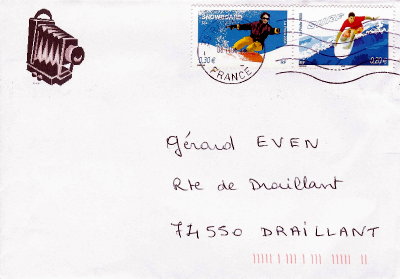 SNOWBOARD
0,30€
0,20€
FRANCE
Gérard EVEN
Rte de Draillant
74550 DRAILLANT